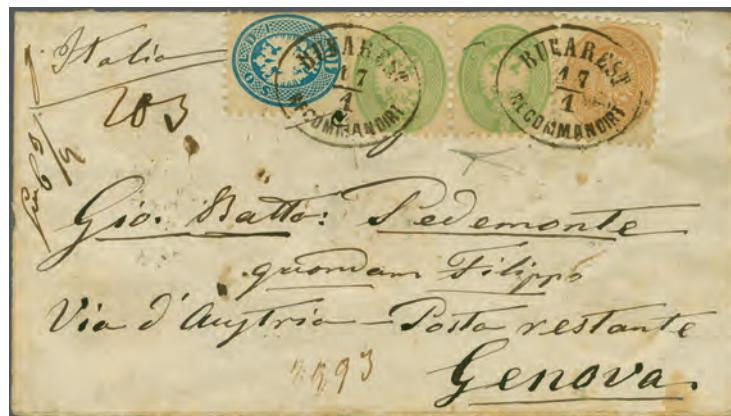 Italia
203
SOLDI
BUKAREST
17
1
RECOMMANDIRT
BUKAREST
17
1
RECOMMANDIRT
Gio. Batta: Pedemonte
quondam Filippo
Via d'Austria - Posta restante
Genova.